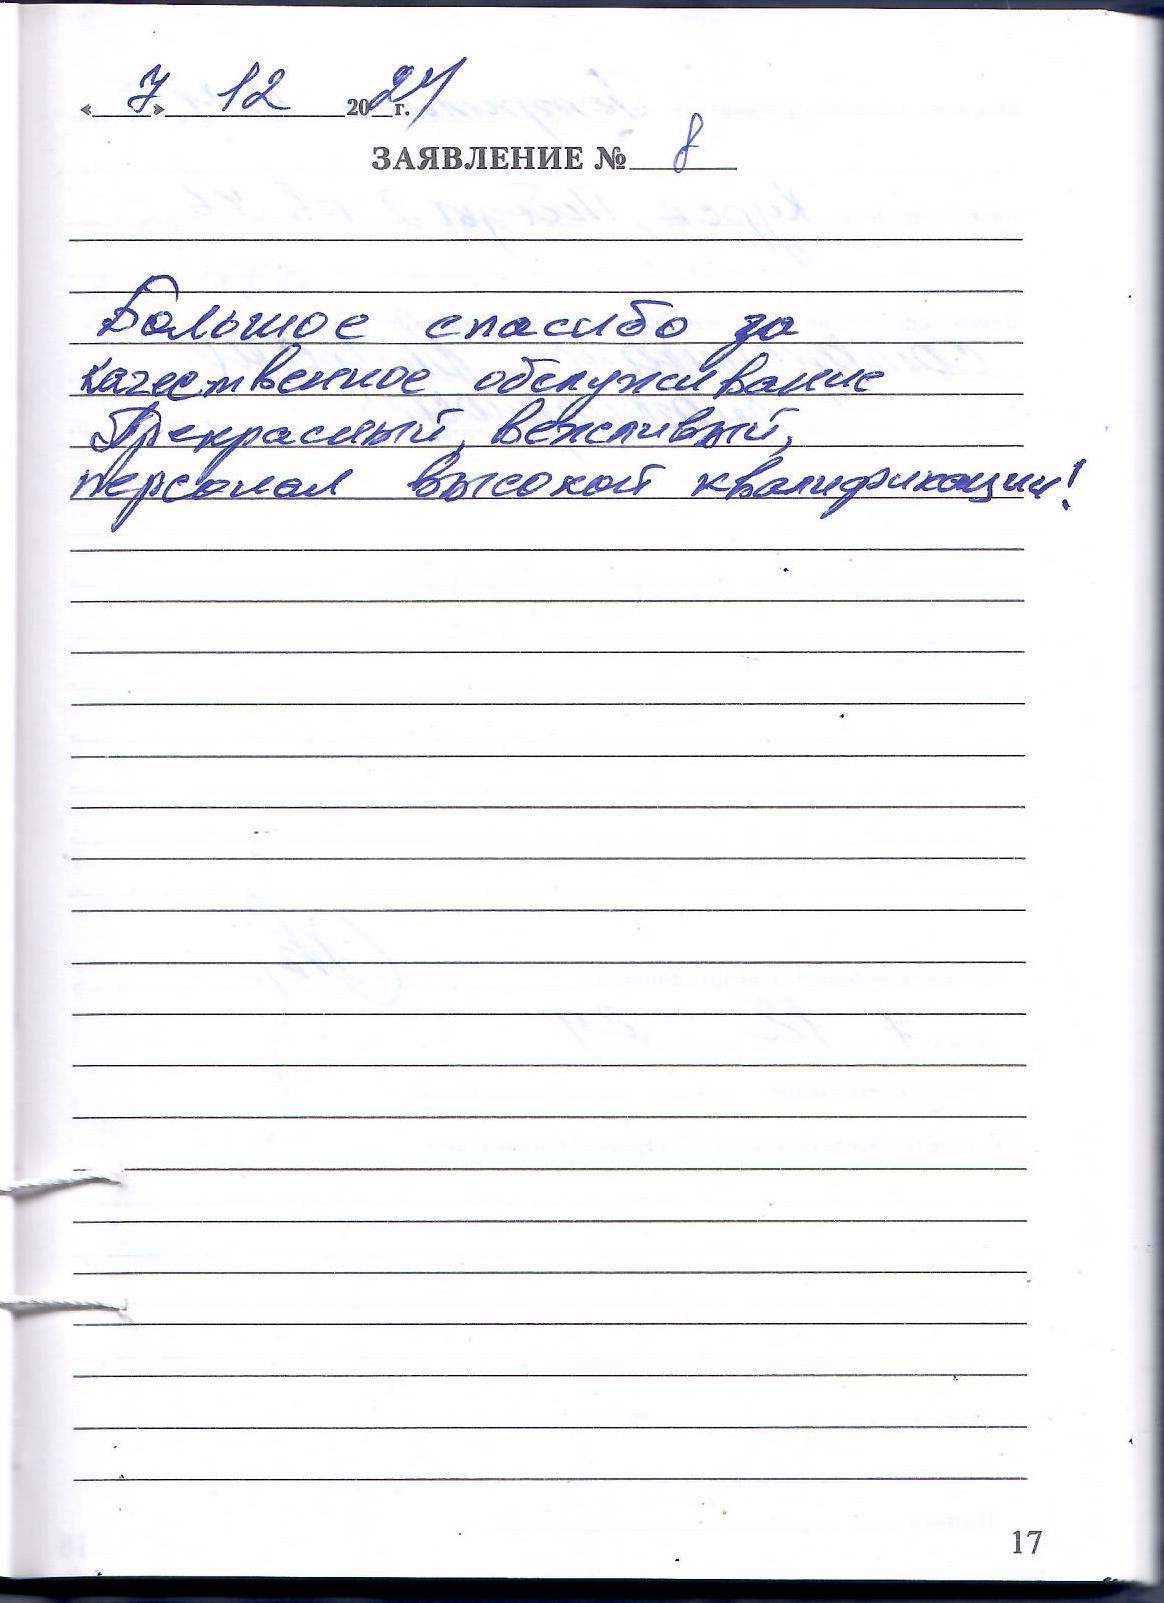 « 7 » 12 2024 г.
ЗАЯВЛЕНИЕ № 8
Большое спасибо за
качественное обслуживание
Прекрасный, вежливый,
персонал высокой квалификации!
17